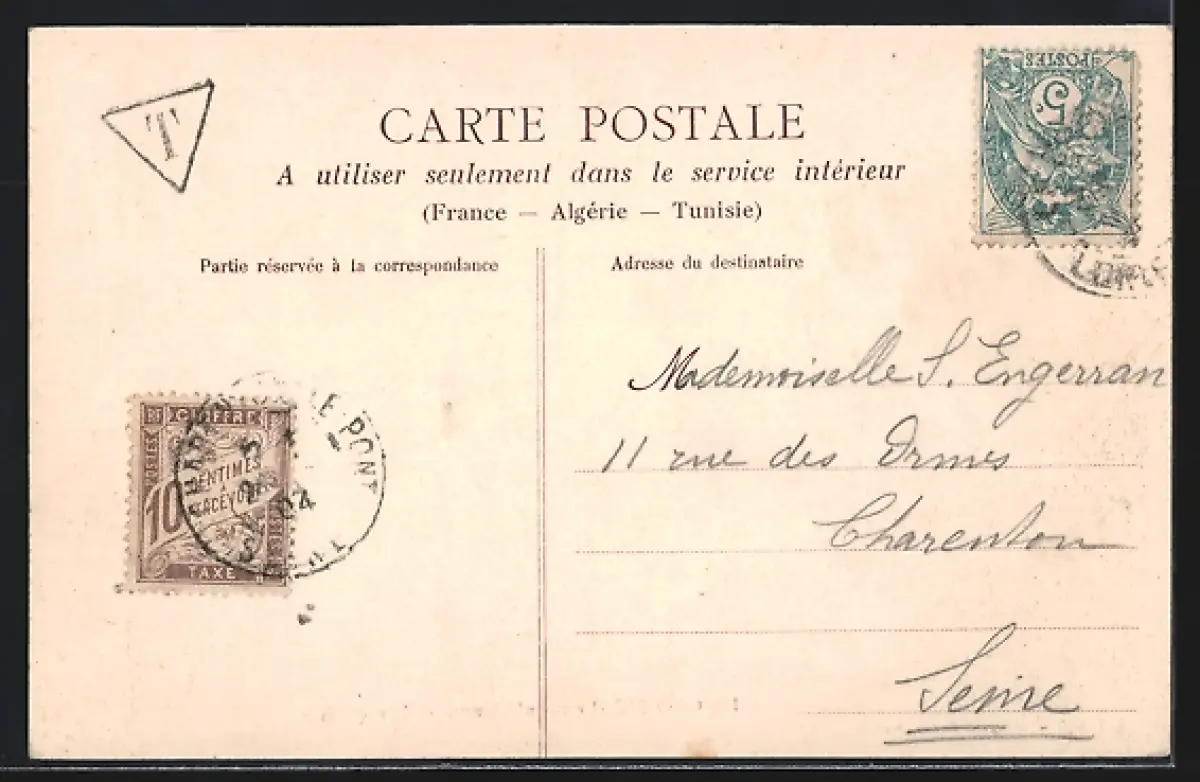 T
CARTE POSTALE
POSTES
5
A utiliser seulement dans le service intérieur
(France — Algérie — Tunisie)
Partie réservée à la correspondance
Adresse du destinataire
Mademoiselle S. Engerran
11 rue des Ormes
Charenton
Seine
RF CHIFFRE
POSTES
10 CENTIMES
À PERCEVOIR
TAXE
LE-PONT
04